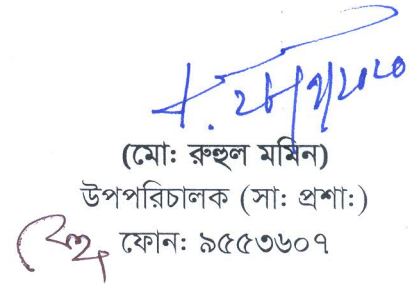 (মো: রুহুল মমিন)
উপপরিচালক (সা: প্রশা:)
ফোন: ৯৫৫৩৬০৭